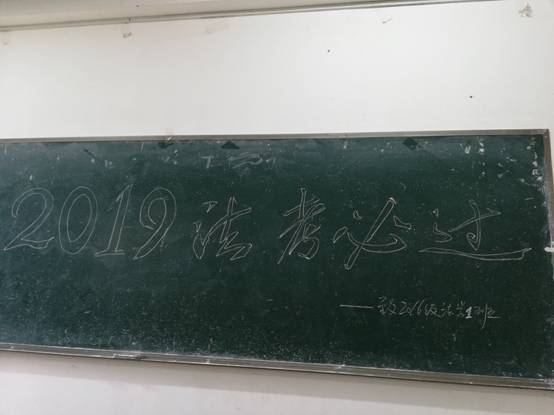 2019法考必过
——致2016级法学1班